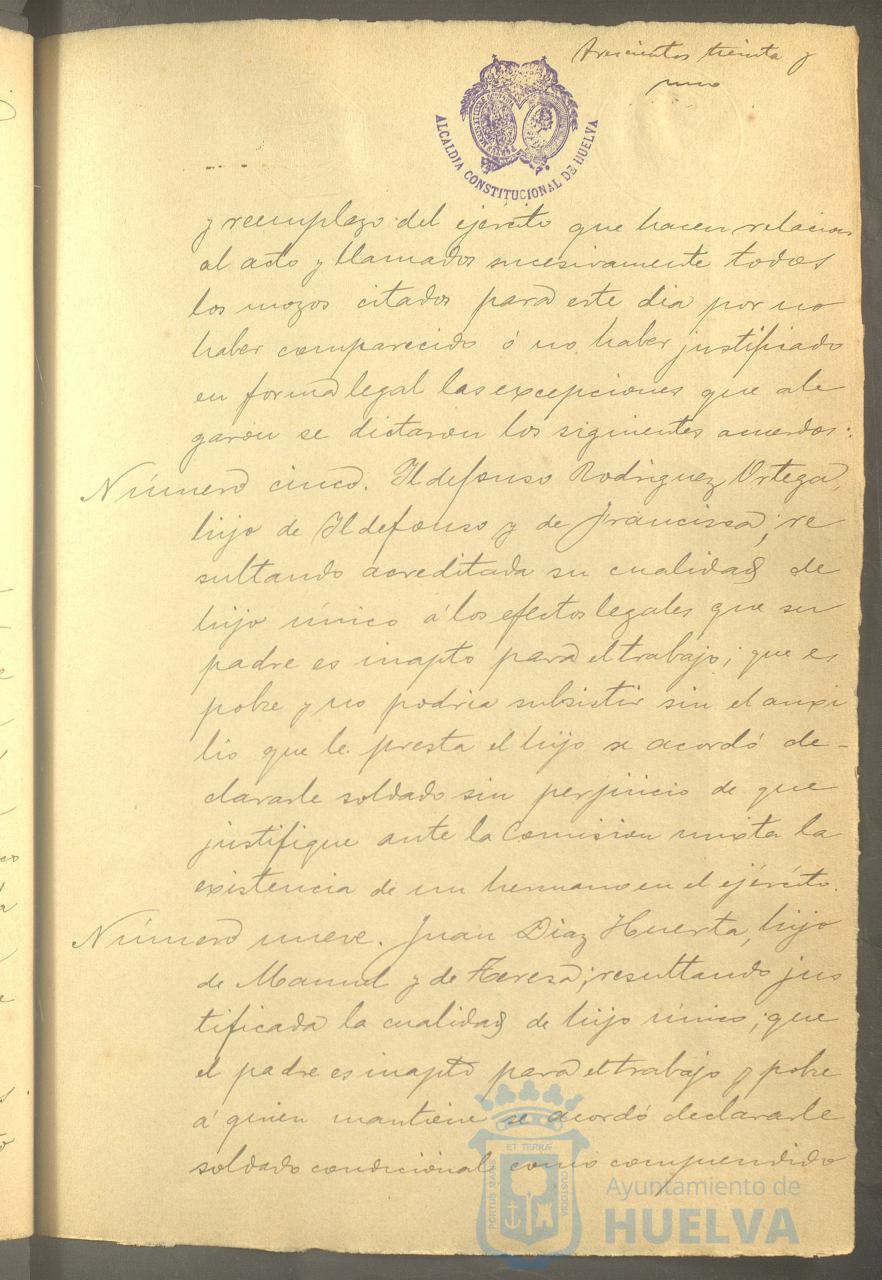 trescientos treinta y
uno
ALCALDIA CONSTITUCIONAL DE HUELVA
y reemplazo del ejército que hacen relacion
al acto y llamados sucesivamente todos
los mozos citados para este dia por no
haber comparecido ó no haber justificado
en forma legal las excepciones que ale
garon se dictaron los siguientes acuerdos:
Número cinco. Ildefonso Rodriguez Ortega,
hijo de Ildefonso y de Francisca; re
sultando acreditada su cualidad de
hijo único á los efectos legales que su
padre es inapto para el trabajo; que es
pobre y no podria subsistir sin el auxi
lio que le presta el hijo se acordó de-
clararle soldado sin perjuicio de que
justifique ante la Comision mixta la
existencia de un hermano en el ejército.
Número nueve. Juan Diaz Huerta, hijo
de Manuel y de Teresa; resultando jus
tificada la cualidad de hijo único; que
el padre es inapto para el trabajo y pobre
á quien mantiene se acordó declararle
soldado condicional como comprendido
ET TERRÆ
PORTUS MARIS
CUSTODIA
Ayuntamiento de
HUELVA